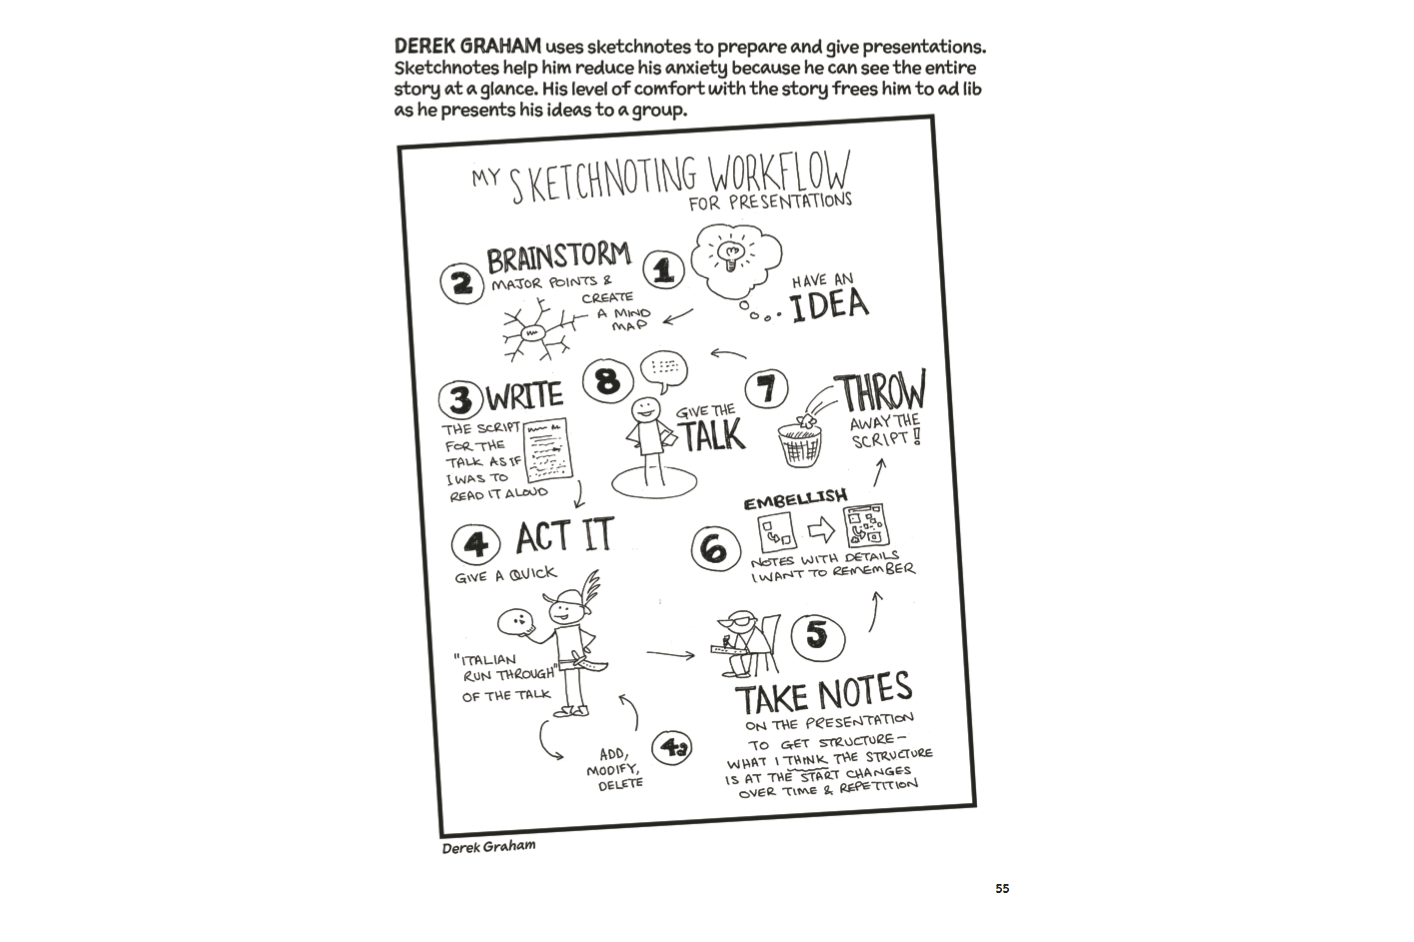 DEREK GRAHAM uses sketchnotes to prepare and give presentations.
Sketchnotes help him reduce his anxiety because he can see the entire
story at a glance. His level of comfort with the story frees him to ad lib
as he presents his ideas to a group.
MY SKETCHNOTING WORKFLOW
FOR PRESENTATIONS
1
HAVE AN
IDEA
2
BRAINSTORM
MAJOR POINTS &
CREATE
A MIND
MAP
3 WRITE
THE SCRIPT
FOR THE
TALK AS IF
I WAS TO
READ IT ALOUD
4 ACT IT
GIVE A QUICK
"ITALIAN
RUN THROUGH"
OF THE TALK
4a
ADD,
MODIFY,
DELETE
5
TAKE NOTES
ON THE PRESENTATION
TO GET STRUCTURE—
WHAT I THINK THE STRUCTURE
IS AT THE START CHANGES
OVER TIME & REPETITION
6
EMBELLISH
NOTES WITH DETAILS
I WANT TO REMEMBER
7
THROW
AWAY THE
SCRIPT!
8
GIVE THE
TALK
Derek Graham
55